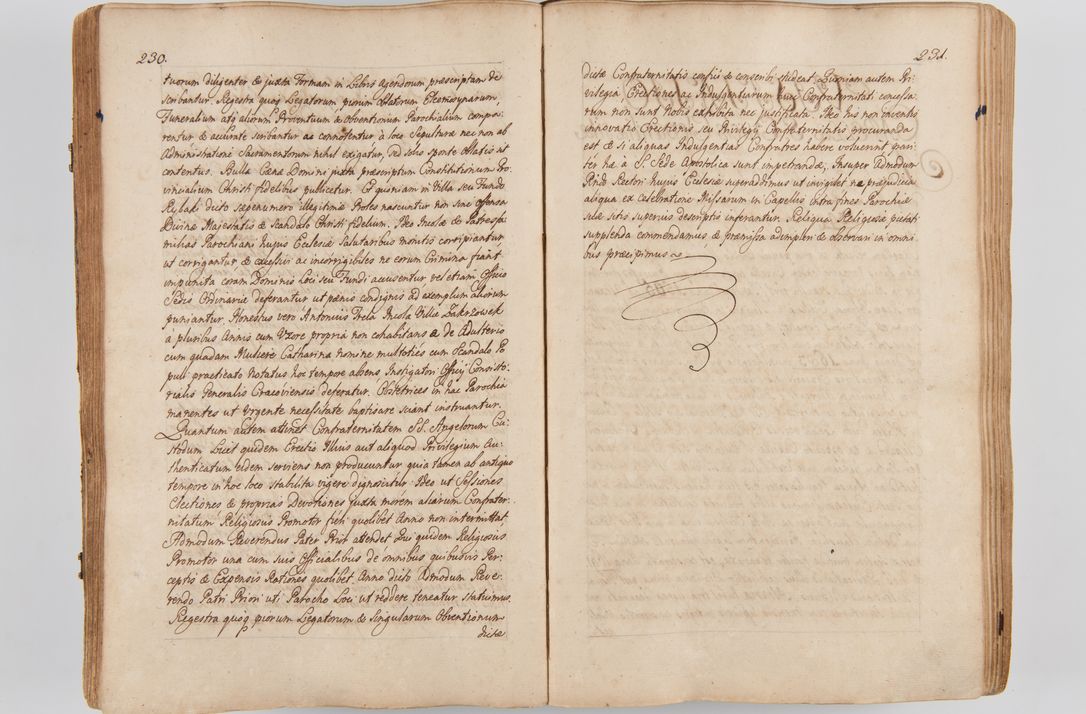 230.
tuorum diligenter & juxta Formam in Libris Agendorum præscriptam de
scribantur. Regestra quoq Legatorum piorum Elatorum Eleemosynarum,
Funeralium atq aliorum Proventuum & Obventionum Parochialium compa
rentur & accurate scribantur ac connotentur à loco Sepulturæ nec non ab
Administratione Sacramentorum nihil exigatur, sed solis sponte oblatis sit
contentus. Bulla Cænæ Domini juxta præscriptum Constitutionum Pro
vincialium Christi fidelibus publicetur. Et quoniam in Villa seu Fundo
Rylak dicto sæpenumero illegitimæ Proles nascuntur non sine offensa
Divinæ Majestatis & Scandalo Christi fidelium. Ideo Incolæ & Patresfa
milias Parochiani hujus Ecclesiæ Salutaribus monitis corripiantur
ut corrigantur & excessivi ac incorrigibiles ne eorum Crimina fiant
impunita coram Dominis loci seu Fundi accusentur vel etiam Officio
Sedis Ordinariæ deferantur ut pænis condignis ad exemplum aliorum
puniantur. Honestus vero Antonius Trela Incola Villæ Zakrzowek
a pluribus Annis cum Uxore propria non cohabitans & de Adulterio
cum quadam Muliere Catharina nomine multoties cum Scandalo Po
puli practicato Notatus hoc tempore absens Instigatori Officij Consisto
rialis Generalis Cracoviensis deferatur. Obstetrices in hac Parochia
manentes ut Urgente necessitate baptisare sciant instruantur.
Quantum autem attinet Confraternitatem SS. Angelorum Cu
stodum Licet quidem Erectio Illius aut aliquod Privilegium Au
thenticatum eidem serviens non producuntur quia tamen ab antiquo
tempore in hoc loco stabilita vigere dignoscitur. Ideo ut Sessiones
Electiones & proprias Devotiones juxta morem aliarum Confrater
nitatum Religiosus Promotor fieri quolibet Anno non intermittat
Admodum Reverendus Pater Prior attendet Qui quidem Religiosus
Promotor una cum suis Officialibus de omnibus quibusvis Per
ceptis & Expensis Rationes quolibet Anno dicto Admodum Reve
rendo Patri Priori uti Parocho Loci ut reddere teneatur statuimus.
Regestra quoq piorum Legatorum & Singularum Obventionum
dictæ
231.
dictæ Confraternitatis confici & conscribi studeat. Quoniam autem Pri
vilegia Erectiones ac Indulgentiarum huic Confraternitati concessa
rum non sunt Nobis exhibita nec justificata. Ideo his non inventis
innovatio Erectionis seu Privilegij Confraternitatis procuranda
est & si aliquas Indulgentias Confratres habere voluerint pari
ter hæ à S. Sede Apostolica sunt impetrandæ, Insuper Admodum
Rndo Rectori hujus Ecclesiæ superaddimus ut invigilet ne præjudicia
aliqua ex celebratione Missarum in Capellis intra fines Parochiæ
suæ sitis superius descriptis inferantur. Reliqua Religiosæ pietati
supplenda commendamus, & præmissa adimpleri & observari in omni
bus præcipimus